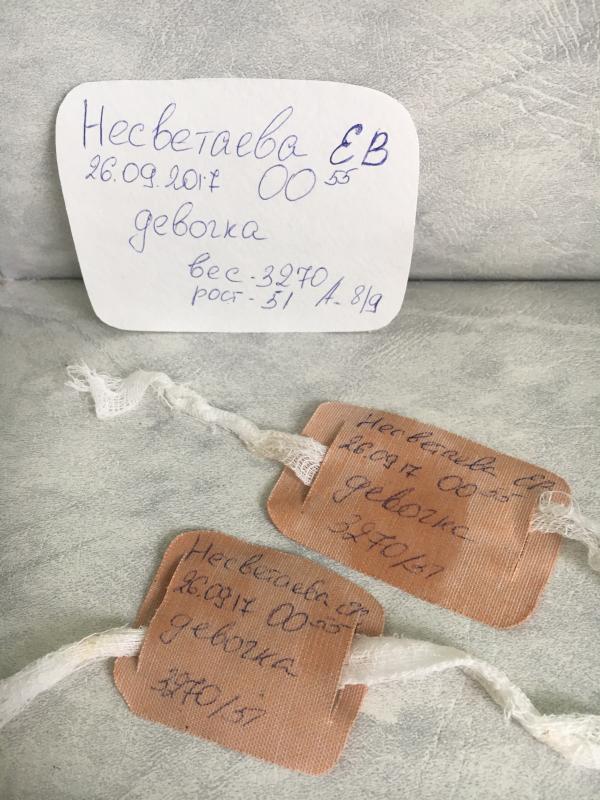 Несветаева ЕВ
26.09.2017 00 55
девочка
вес - 3270
рост - 51 А - 8/9
Несветаева ЕВ
26.09.17 00-55
девочка
3270/51
Несветаева ЕВ
26.09.17 00-55
девочка
3270/51